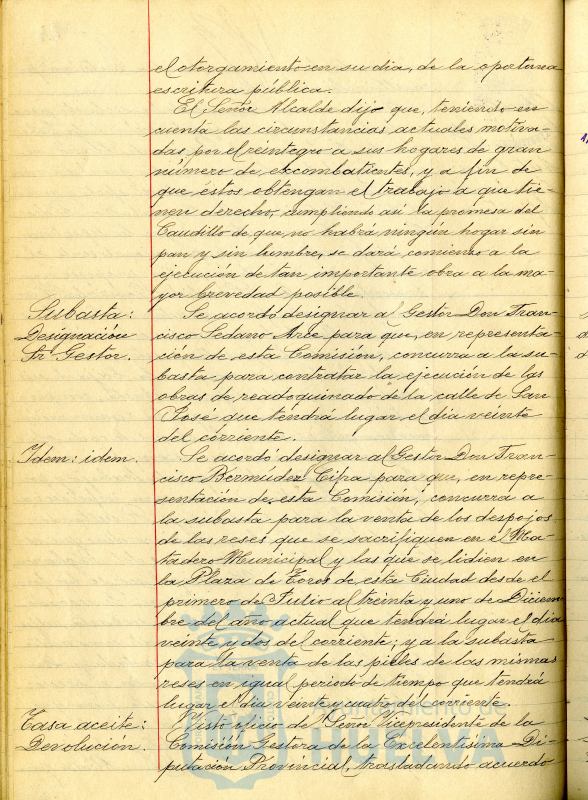 el otorgamiento en su dia, de la oportuna
escritura pública.
El Señor Alcalde dijo que, teniendo en
cuenta las circunstancias actuales motiva-
das por el reintegro a sus hogares de gran
número de excombatientes, y a fin de
que éstos obtengan el trabajo a que tie-
nen derecho, cumpliendo así la promesa del
Caudillo de que no habrá ningún hogar sin
pan y sin lumbre, se dará comienzo a la
ejecución de tan importante obra a la ma-
yor brevedad posible.
Subasta:
Designación
Sr. Gestor.
Se acordó designar al Gestor Don Fran-
cisco Sedano Arce para que, en representa-
ción de esta Comisión, concurra a la su-
basta para contratar la ejecución de las
obras de readoquinado de la calle de San
José que tendrá lugar el dia veinte
del corriente.
Idem: idem.
Se acordó designar al Gestor Don Fran-
cisco Bermudez Cifra para que, en repre-
sentación de esta Comisión, concurra a
la subasta para la venta de los despojos
de las reses que se sacrifiquen en el Ma-
tadero Municipal y las que se lidien en
la Plaza de Toros de esta Ciudad desde el
primero de Julio al treinta y uno de Diciem-
bre del año actual que tendrá lugar el dia
veinte y dos del corriente; y a la subasta
para la venta de las pieles de las mismas
reses en igual periodo de tiempo que tendrá
lugar el dia veinte y cuatro del corriente.
Tasa aceite:
Devolución.
Visto oficio del Señor Vicepresidente de la
Comisión Gestora de la Excelentisima Di-
putación Provincial, trasladando acuerdo